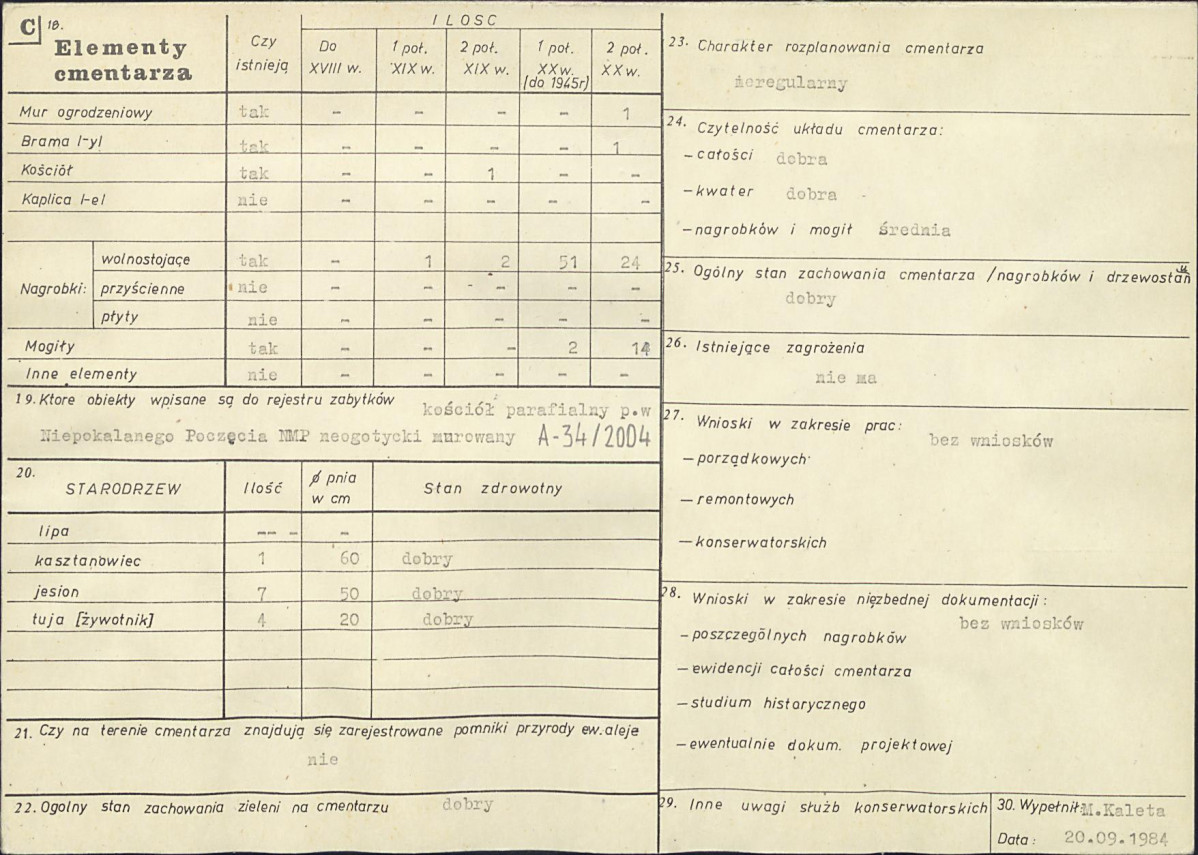 C 18.
Elementy cmentarza
Czy istnieją
ILOSC
Do XVIII w.
1 poł. XIX w.
2 poł. XIX w.
1 poł. XX w. (do 1945r)
2 poł. XX w.
Mur ogrodzeniowy tak – – – – 1
Brama /-y/ tak – – – – 1
Kościół tak – – 1 – –
Kaplica /-e/ nie – – – – –
Nagrobki:
wolnostojące tak – 1 2 51 24
przyścienne nie – – – – –
płyty nie – – – – –
Mogiły tak – – – 2 14
Inne elementy nie – – – – –
19. Ktore obiekty wpisane są do rejestru zabytków kościół parafialny p.w
Niepokalanego Poczęcia NMP neogotycki murowany A-34/2004
20.
STARODRZEW Ilość ø pnia w cm Stan zdrowotny
lipa -- - –
kasztanowiec 1 60 dobry
jesion 7 50 dobry
tuja [żywotnik] 4 20 dobry
21. Czy na terenie cmentarza znajdują się zarejestrowane pomniki przyrody ew. aleje
nie
22. Ogolny stan zachowania zieleni na cmentarzu dobry
23. Charakter rozplanowania cmentarza
ieregularny
24. Czytelność układu cmentarza:
– całości dobra
– kwater dobra
– nagrobków i mogił średnia
25. Ogólny stan zachowania cmentarza /nagrobków i drzewostan
dobry
26. Istniejące zagrożenia
nie ma
27. Wnioski w zakresie prac:
bez wniosków
– porządkowych
– remontowych
– konserwatorskich
28. Wnioski w zakresie nięzbednej dokumentacji:
bez wniosków
– poszczególnych nagrobków
– ewidencji całości cmentarza
– studium historycznego
– ewentualnie dokum. projektowej
29. Inne uwagi służb konserwatorskich
30. Wypełnił: M.Kaleta
Data: 20.09.1984